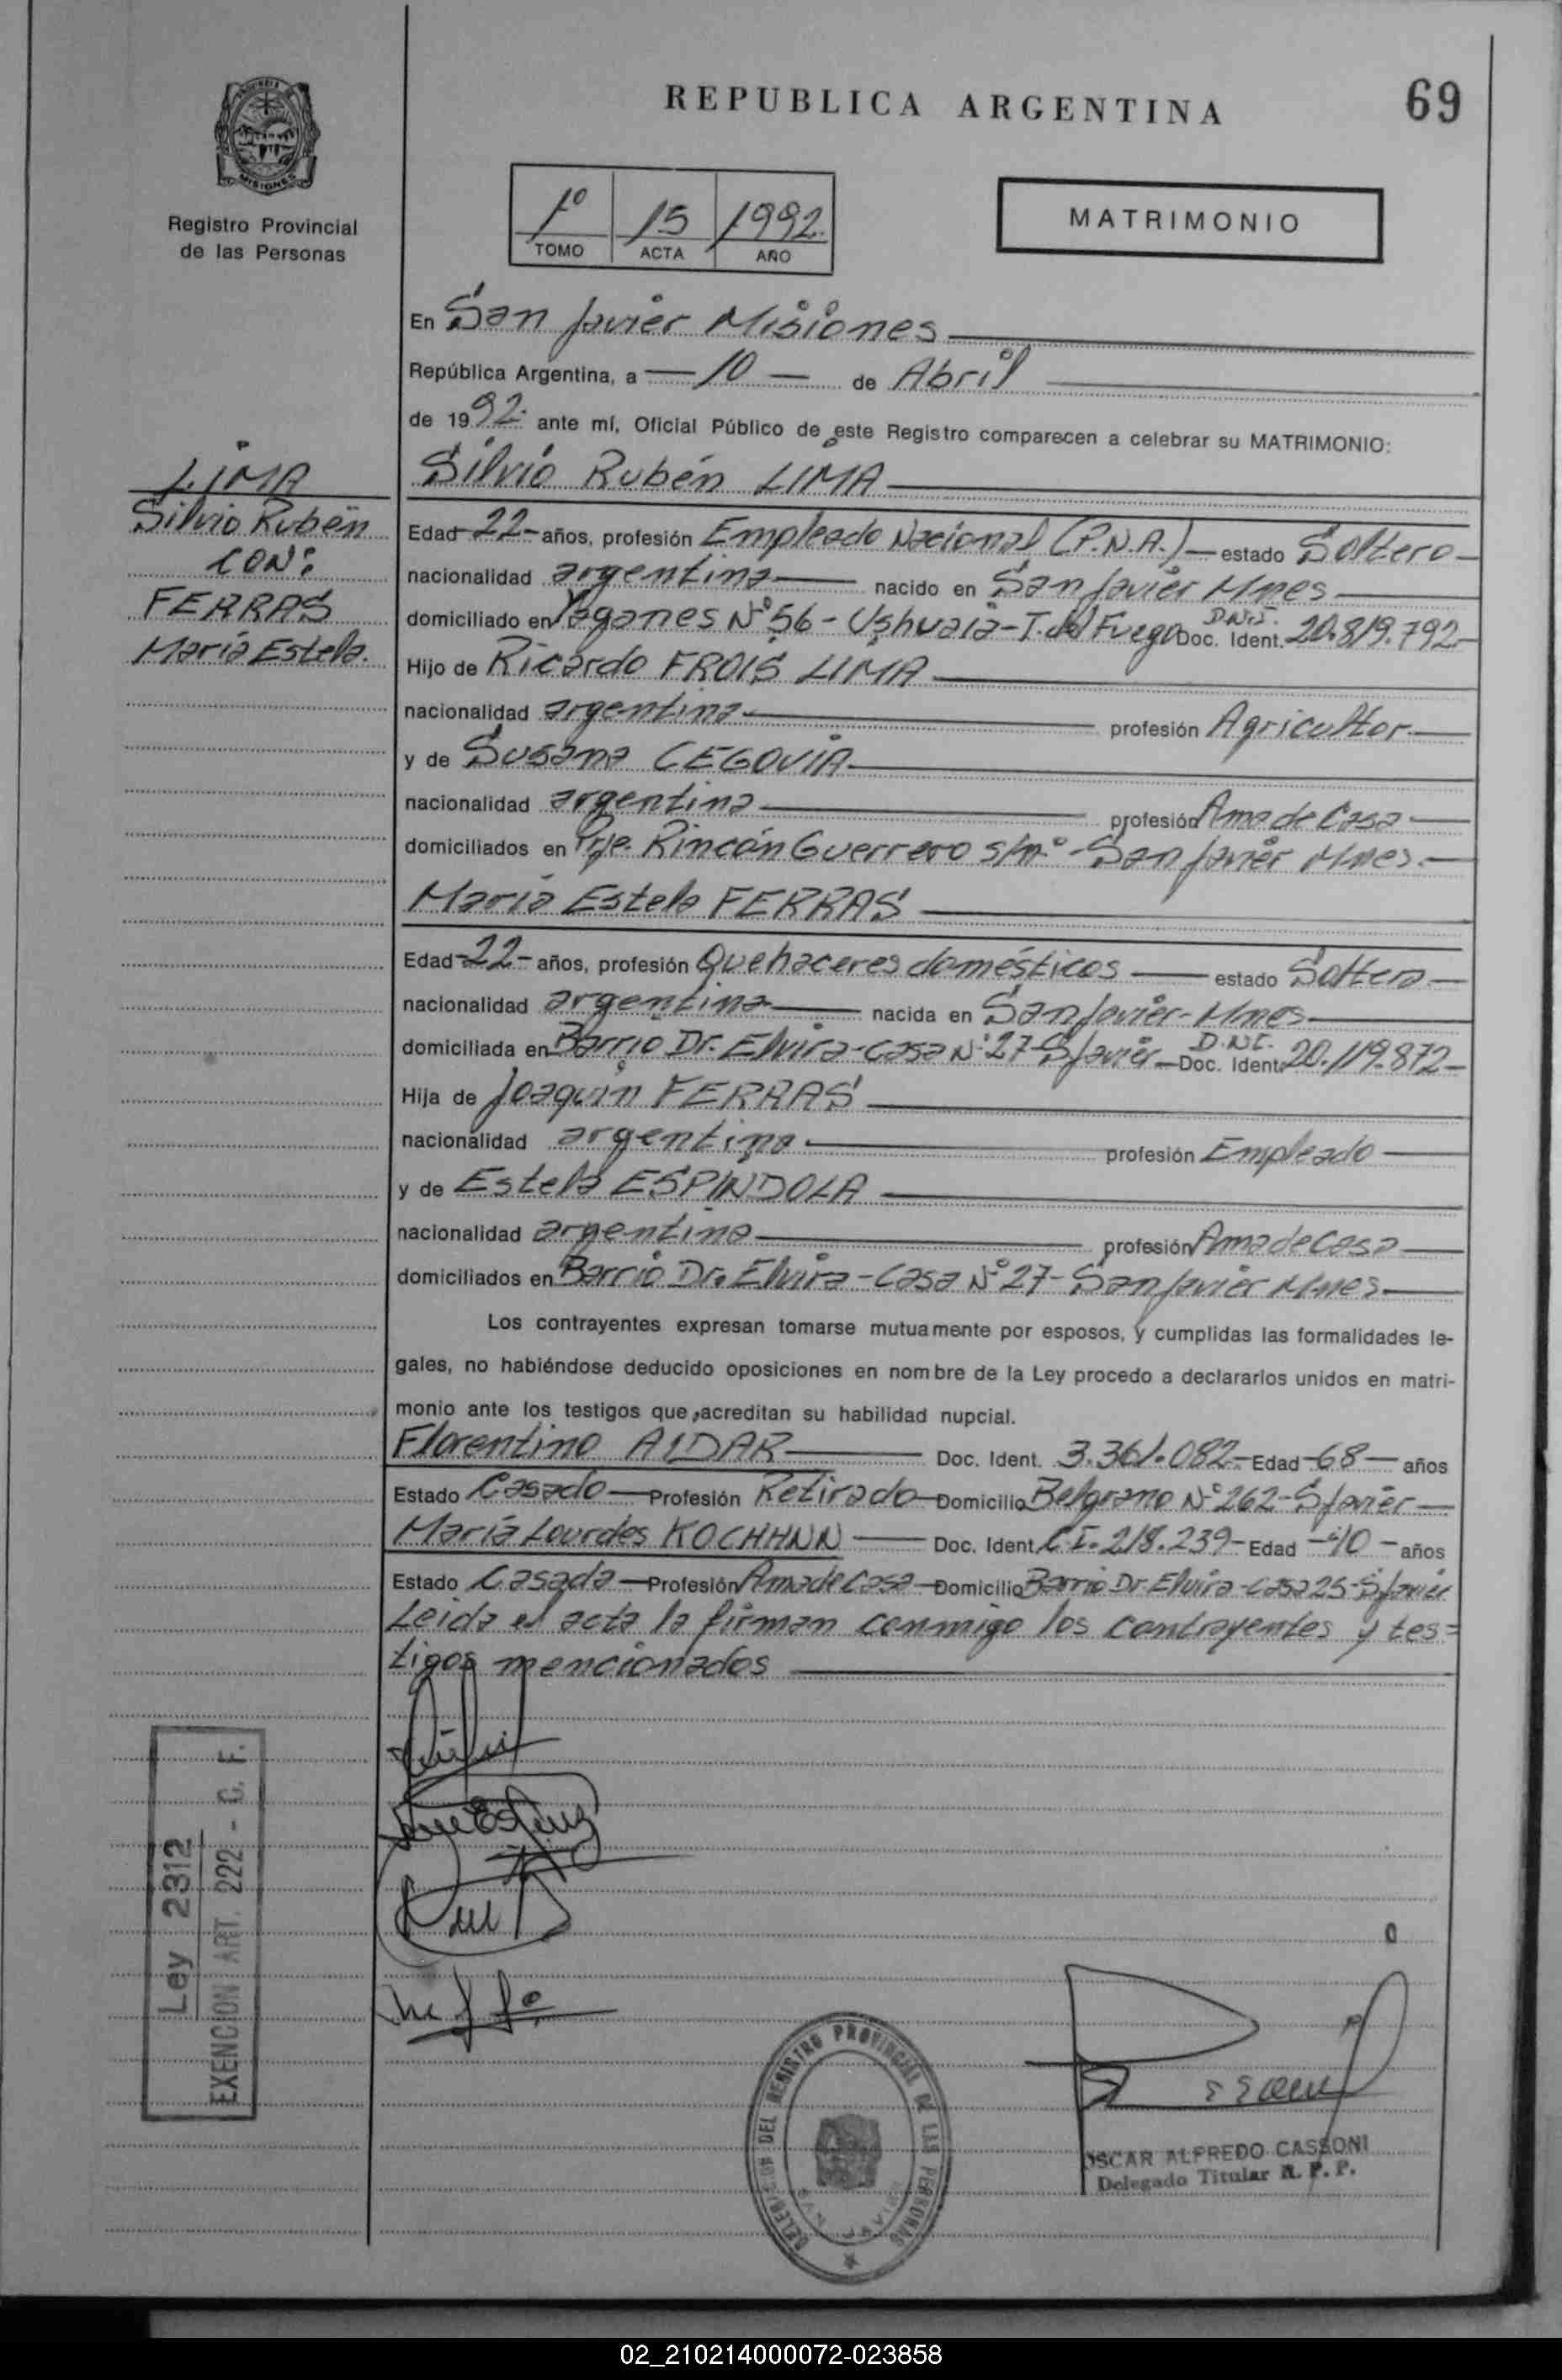 REPUBLICA ARGENTINA
69
MISIONES
Registro Provincial
de las Personas
1º 15 1992
TOMO ACTA AÑO
MATRIMONIO
En San Javier Misiones
República Argentina, a 10 de Abril
de 1992 ante mí, Oficial Público de este Registro comparecen a celebrar su MATRIMONIO:
Silvio Rubén LIMA
LIMA
Silvio Rubén
CON:
FERRAS
María Estela.
Edad 22 años, profesión Empleado Nacional (P.N.A.) estado Soltero
nacionalidad argentina nacido en San Javier Mnes
domiciliado en Yaganes Nº 56 - Ushuaia - T. del Fuego D.N.I. Doc. Ident. 20.819.792
Hijo de Ricardo FROIS LIMA
nacionalidad argentina profesión Agricultor
y de Susana CEGOVIA
nacionalidad argentina profesión Ama de Casa
domiciliados en Pje. Rincón Guerrero s/nº - San Javier Mnes
María Estela FERRAS
Edad 22 años, profesión Quehaceres domésticos estado Soltera
nacionalidad argentina nacida en San Javier - Mnes
domiciliada en Barrio Dr. Elvira - Casa Nº 27 - S Javier D.N.I. Doc. Ident. 20.119.872
Hija de Joaquín FERRAS
nacionalidad argentina profesión Empleado
y de Estela ESPINDOLA
nacionalidad argentina profesión Ama de Casa
domiciliados en Barrio Dr. Elvira - Casa Nº 27 - San Javier Mnes
Los contrayentes expresan tomarse mutuamente por esposos, y cumplidas las formalidades le-
gales, no habiéndose deducido oposiciones en nombre de la Ley procedo a declararlos unidos en matri-
monio ante los testigos que acreditan su habilidad nupcial.
Florentino AIDAR Doc. Ident. 3.361.082 Edad 68 años
Estado Casado Profesión Retirado Domicilio Belgrano Nº 262 - S Javier
María Lourdes KOCHHNN Doc. Ident. C.I. 218.239 Edad 40 años
Estado Casada Profesión Ama de Casa Domicilio Barrio Dr. Elvira - Casa 25 - S Javier
Leida el acta la firman conmigo los contrayentes y tes=
tigos mencionados
Ley 2312
EXENCION ART. 222 - C. F.
DELEGACION DEL REGISTRO PROVINCIAL DE LAS PERSONAS
SAN JAVIER
OSCAR ALFREDO CASSONI
Delegado Titular R. P. P.
02_210214000072-023858